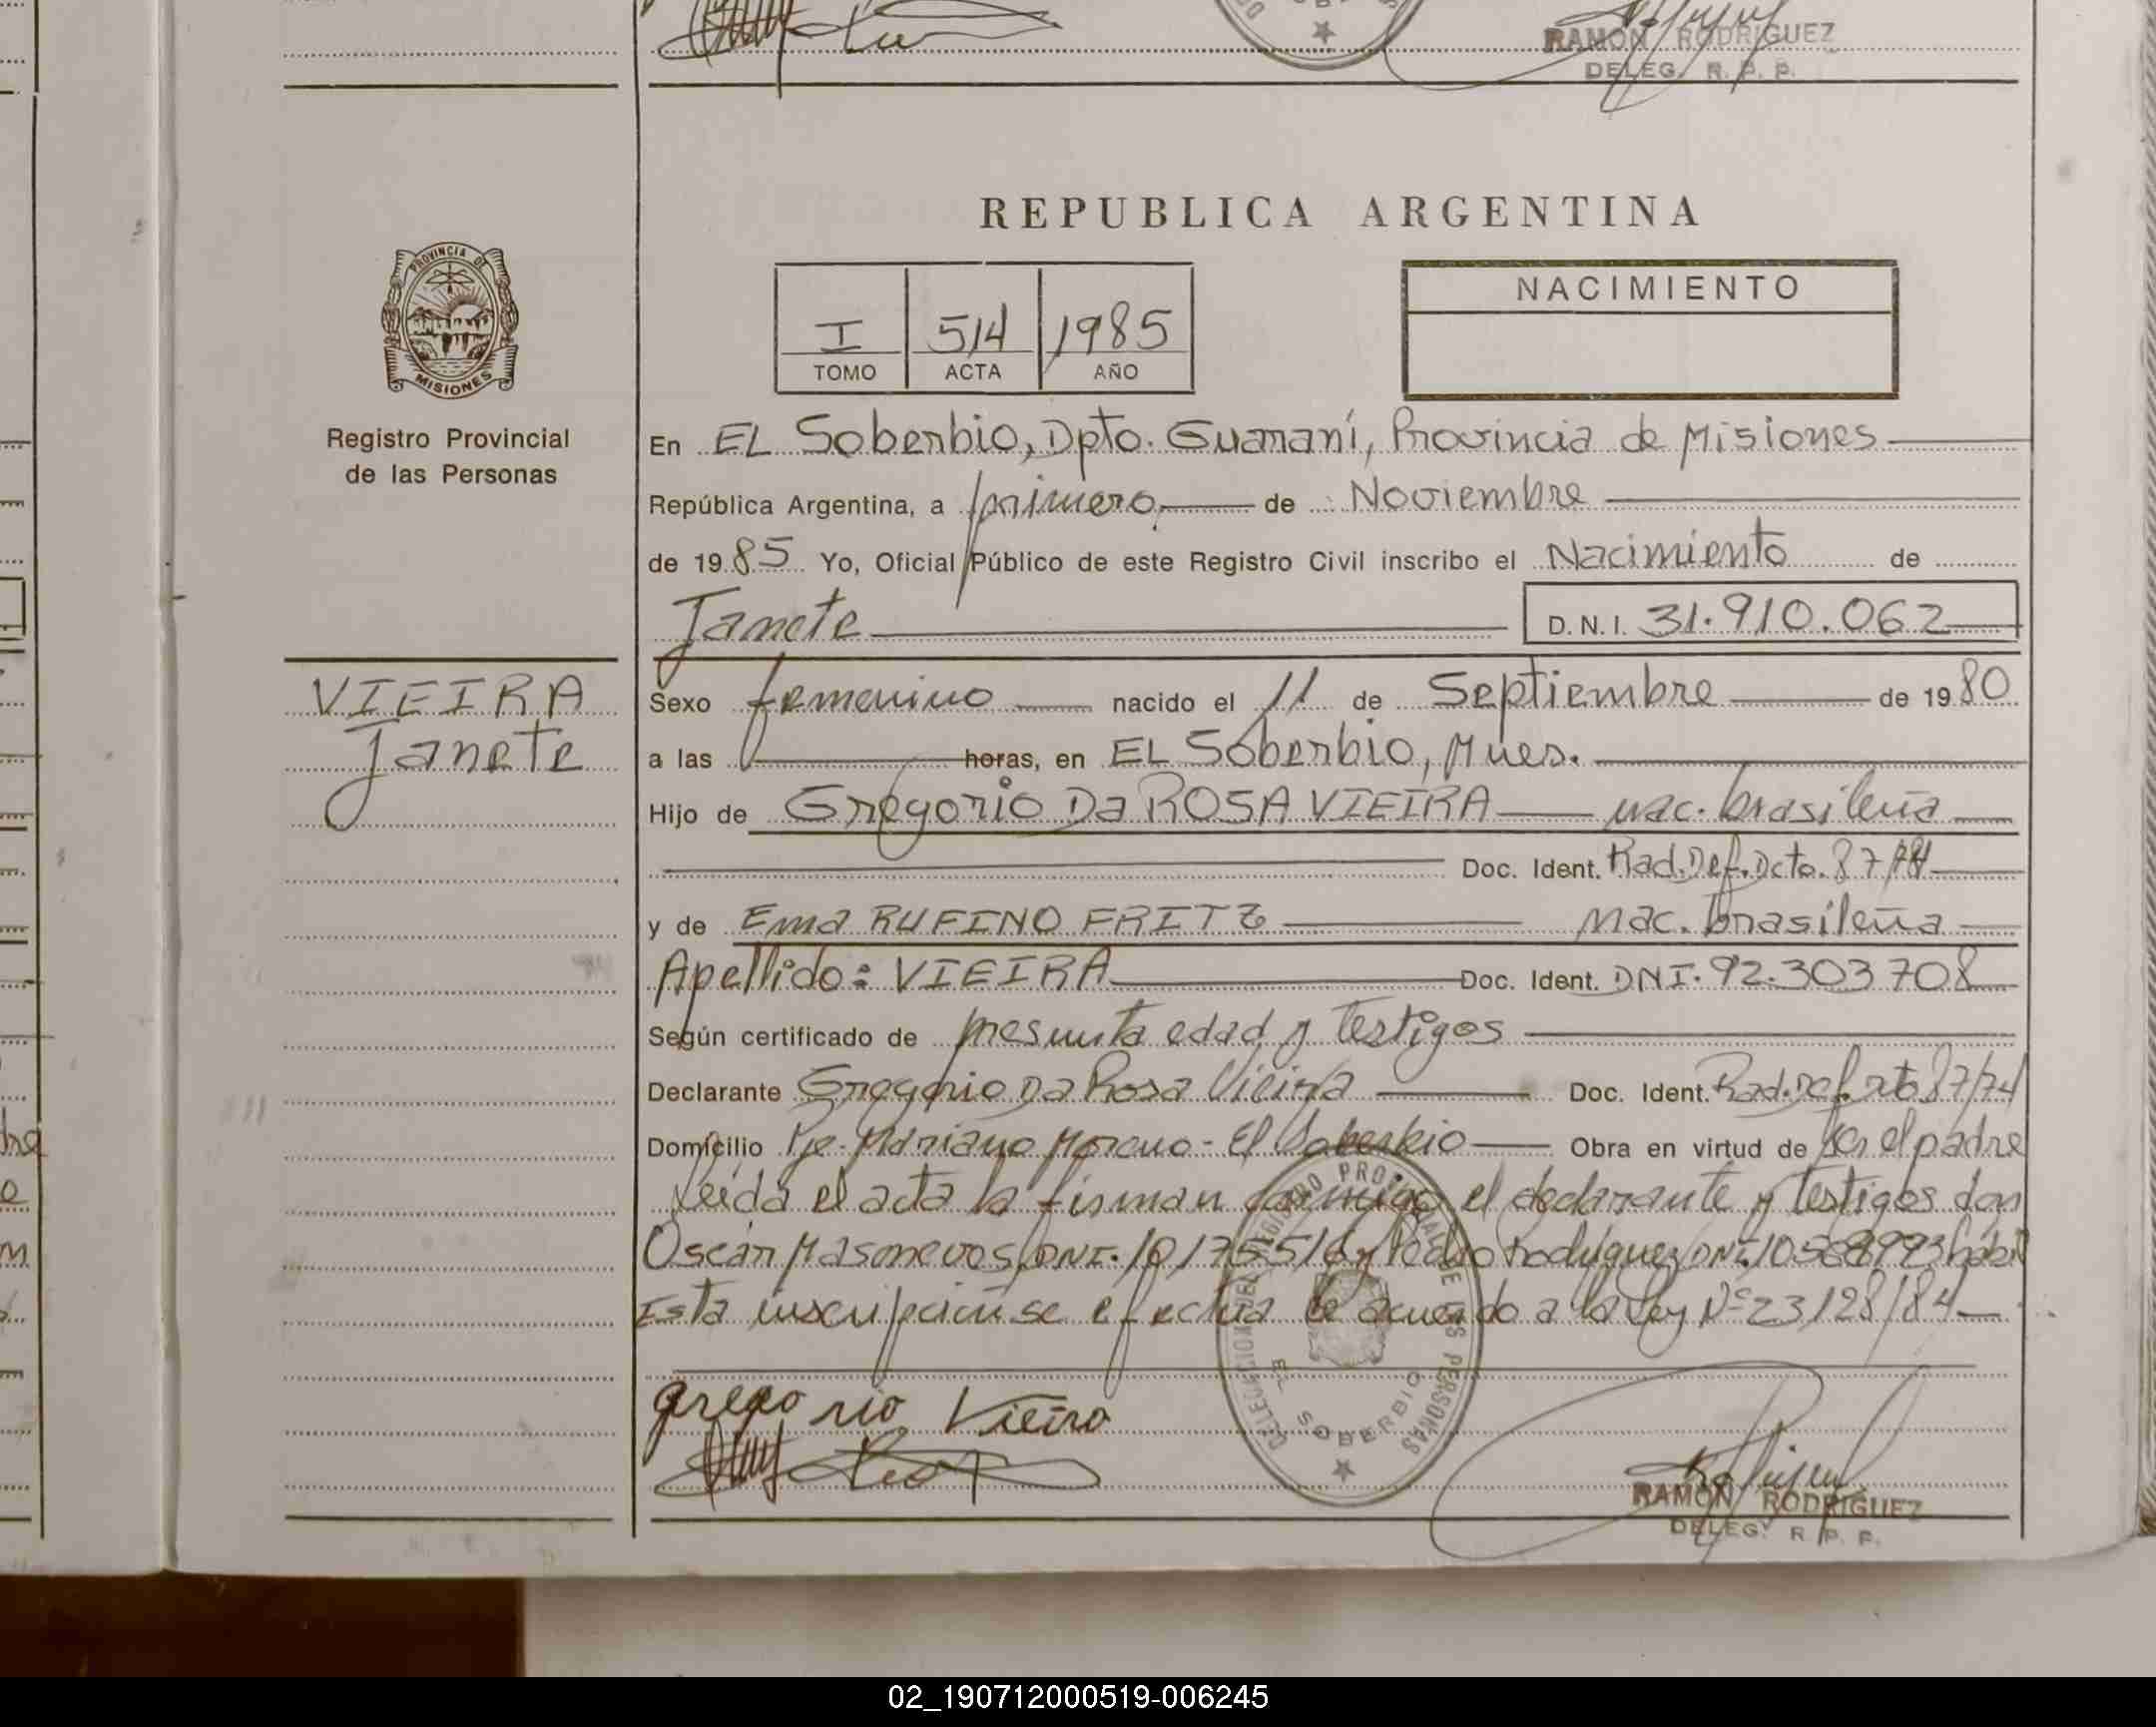 RAMON RODRIGUEZ
DELEG. R. P. P.
PROVINCIA DE
MISIONES
Registro Provincial
de las Personas
VIEIRA
Janete
REPUBLICA ARGENTINA
I 514 1985
TOMO ACTA AÑO
NACIMIENTO
En EL Soberbio, Dpto. Guaraní, Provincia de Misiones
República Argentina, a primero de Noviembre
de 1985 Yo, Oficial Público de este Registro Civil inscribo el Nacimiento de
Janete D.N.I. 31.910.062
Sexo femenino nacido el 11 de Septiembre de 1980
a las horas, en EL Soberbio, Mnes.
Hijo de Gregorio Da ROSA VIEIRA nac. brasileña
Doc. Ident. Rad. Def. Dcto. 87/74
y de Ema RUFINO FRITZ nac. brasileña
Apellido: VIEIRA Doc. Ident. DNI. 92.303708
Según certificado de presunta edad y testigos
Declarante Gregorio Da Rosa Vieira Doc. Ident. Rad. Def. Dcto 87/74
Domicilio Pje. Mariano Moreno - El Soberbio Obra en virtud de ser el padre
Leída el acta la firman conmigo el declarante y testigos don
Oscar DNI. 10,175516 y Pedro Rodriguez DNI 10568993
Esta inscripción se efectua de acuerdo a la Ley Nº 23128/84
gregorio Vieira
DELEGACION DEL REGISTRO PROVINCIAL DE LAS PERSONAS
EL SOBERBIO
RAMON RODRIGUEZ
DELEG. R. P. P.
02_190712000519-006245